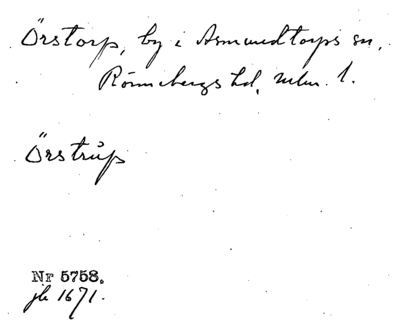 Örstorp, by i Asmundtorps sn,
Rönnebergs hd, mlm. l.
Örstrůp
Nr 5758.
jb 1671.